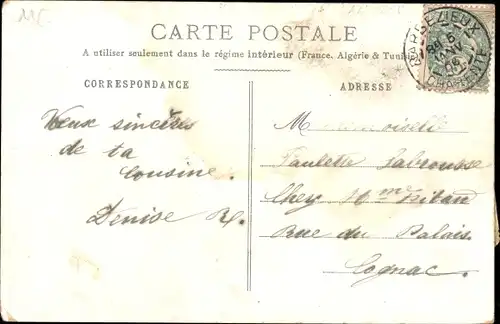 MC
CARTE POSTALE
A utiliser seulement dans le régime intérieur (France, Algérie & Tunisie
CORRESPONDANCE
ADRESSE
BARBEZIEUX
CHARENTE
Vœux sincères
de ta
Cousine.
Denise R.
Mademoiselle
Paulette Labrousse
Chez Mme
Rue du Palais.
Cognac.